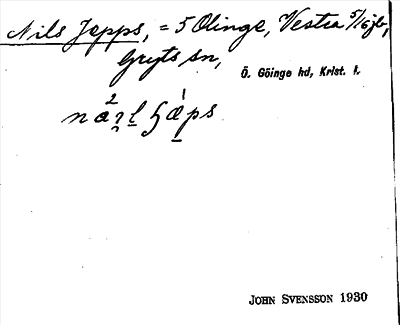 Nils Jepps, = 5 Olinge, Vestra 5/16 jb,
Gryts sn,
Ö. Göinge hd, Krist. l.
JOHN SVENSSON 1930